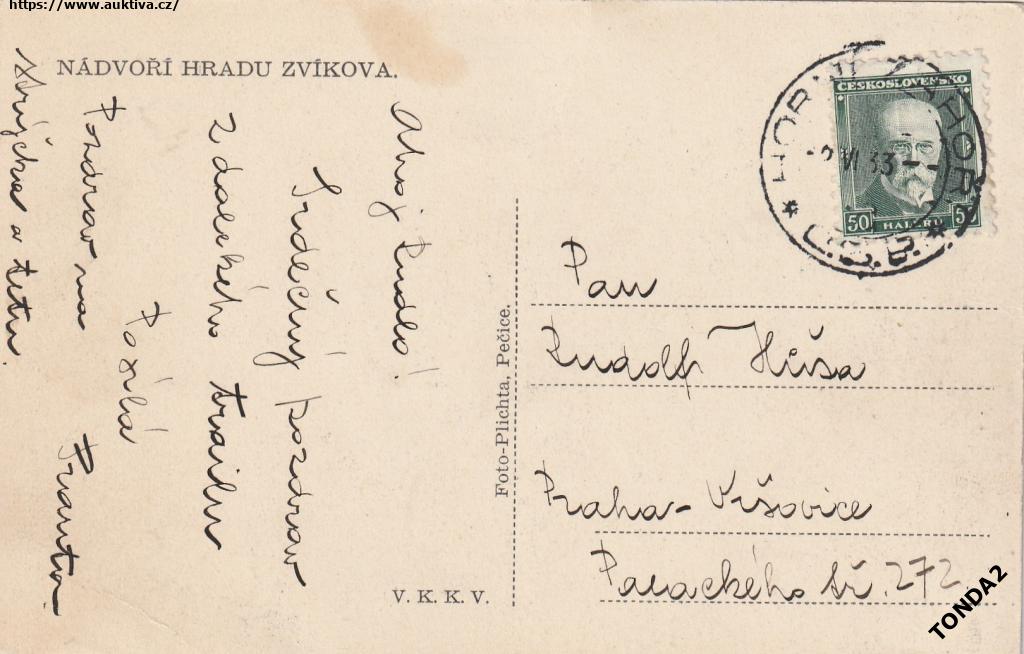 https://www.auktiva.cz/
NÁDVOŘÍ HRADU ZVÍKOVA.
Ahoj Rudlo!
Srdečný pozdrav
z dalekého
posílá
Franta
Pozdrav na
strýčka a tetu.
Foto-Plichta, Pečice.
V. K. K. V.
ČESKOSLOVENSKO
50 HALÉŘŮ 50
HORNÍ ZÁHOŘÍ
VI 33
Pan
Rudolf Hůša
Praha - Vršovice
Palackého tř. 272
TONDA2